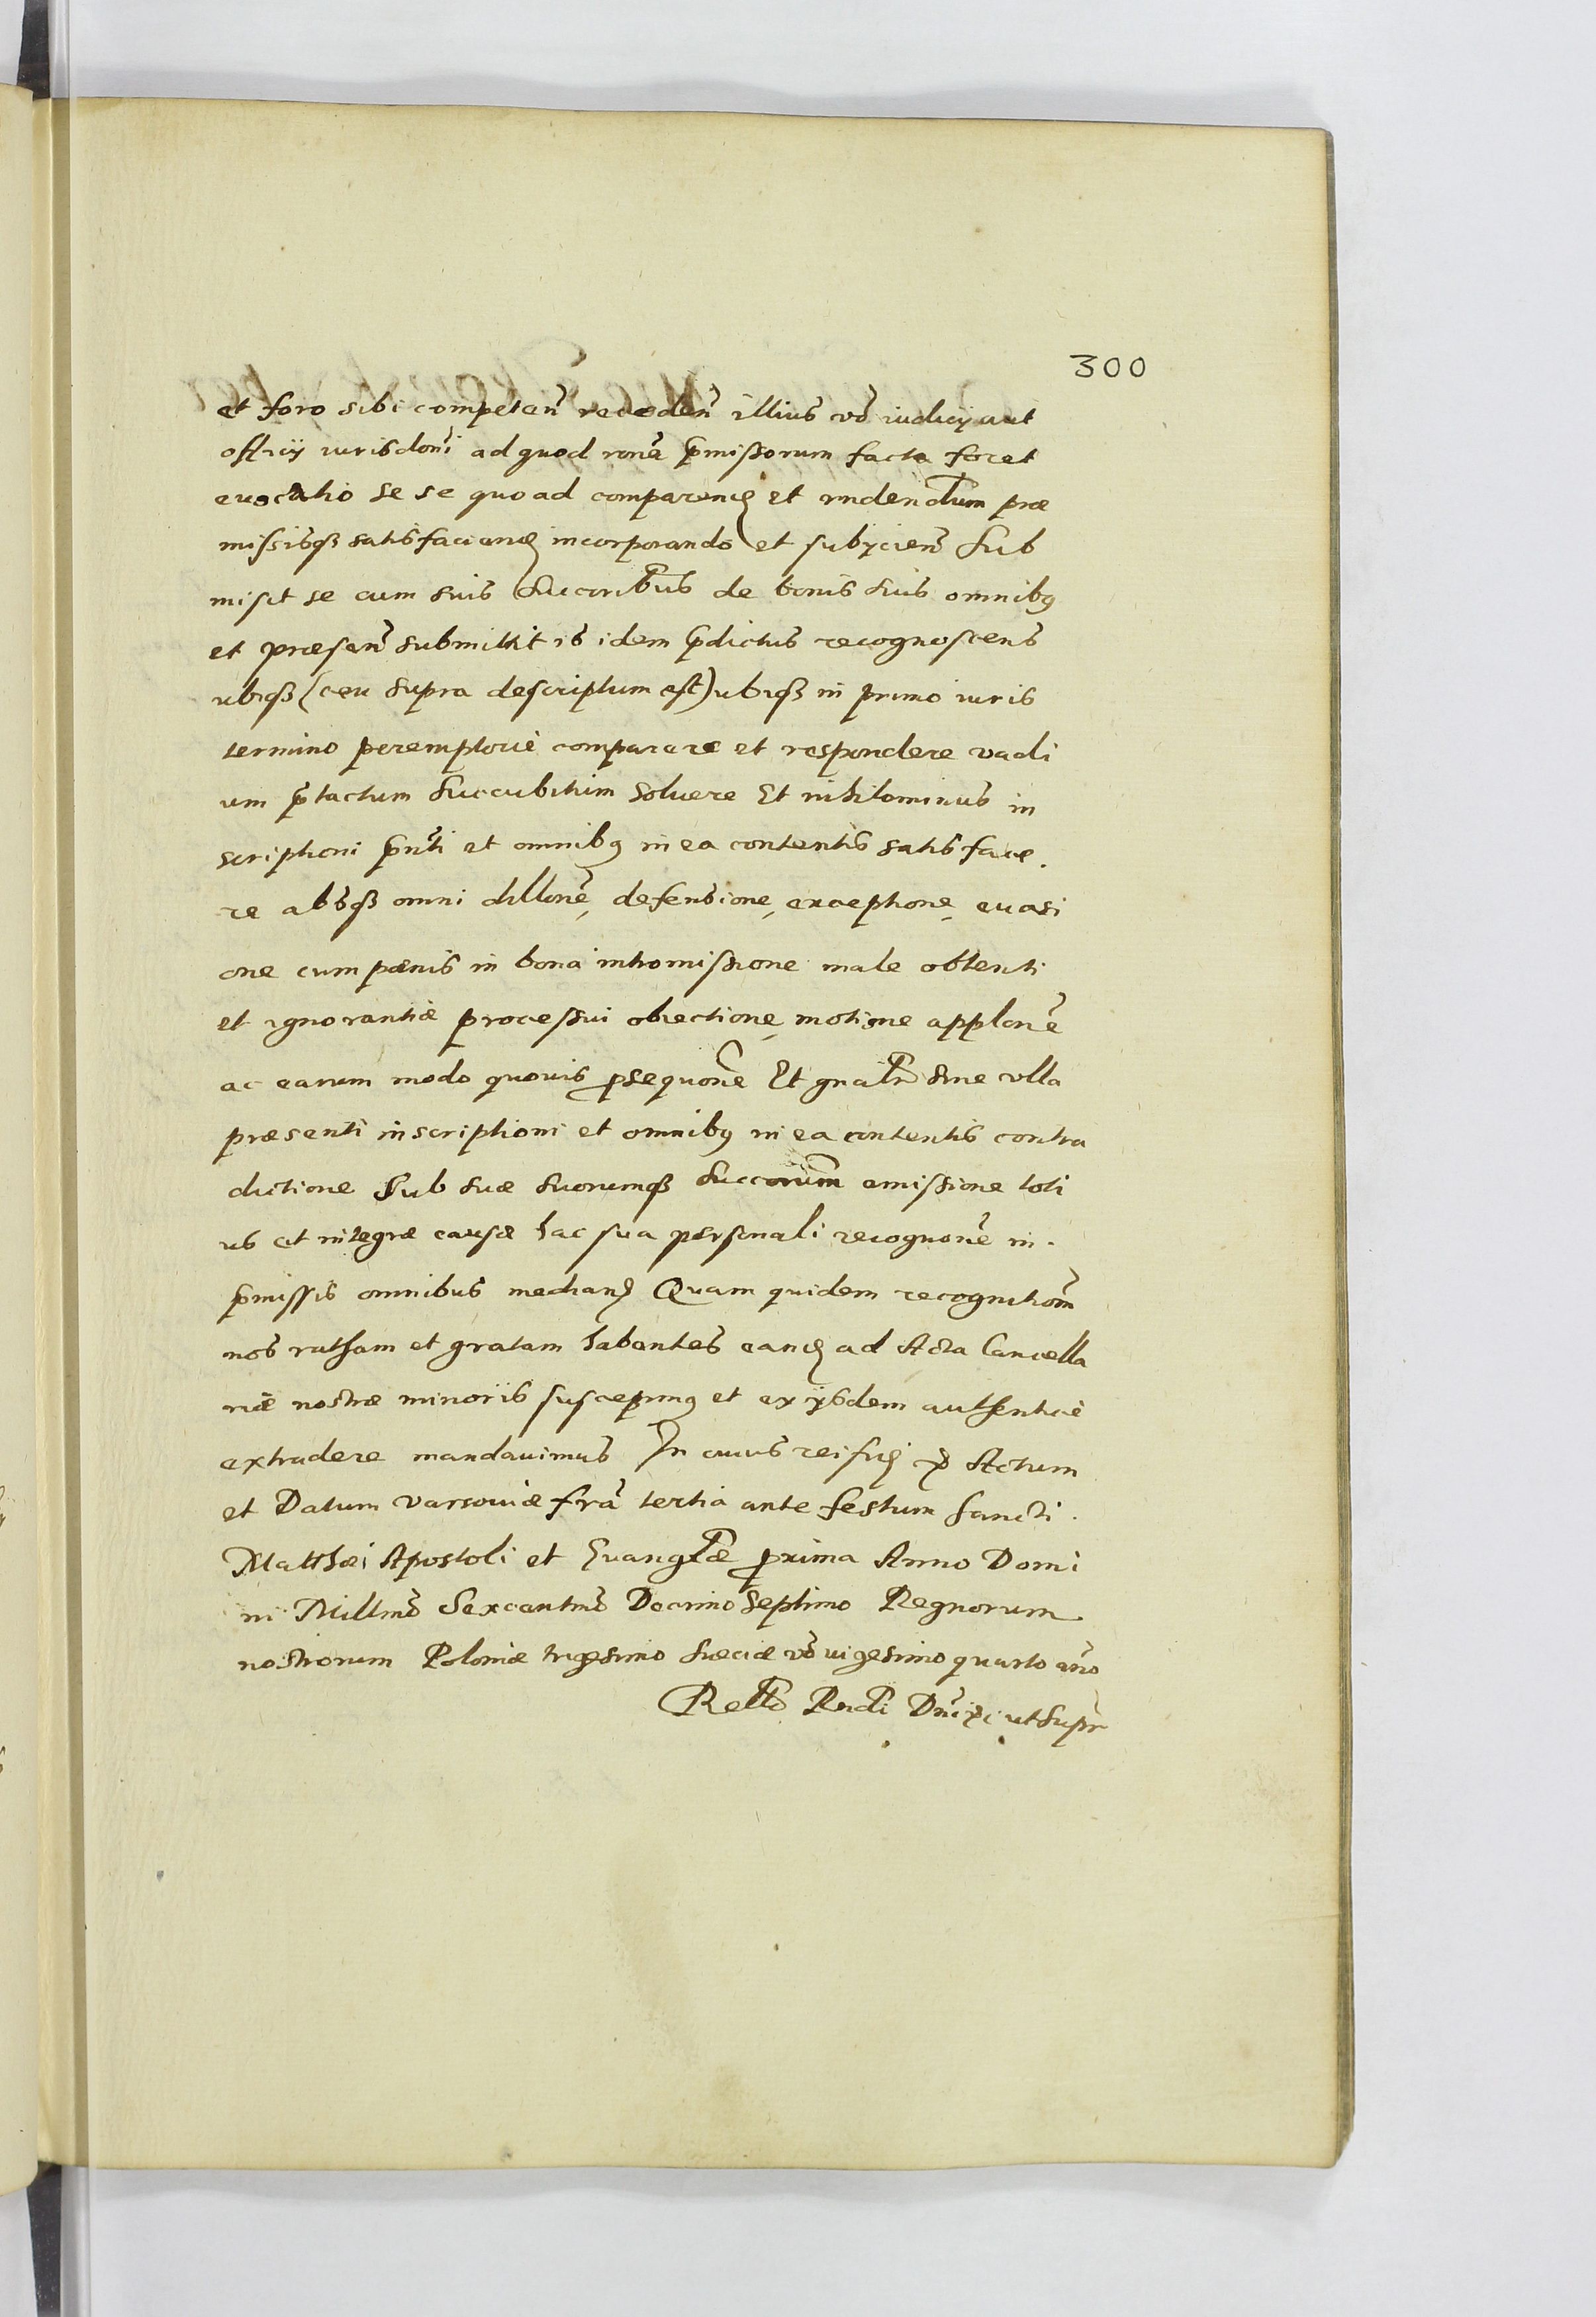 300
et foro sibi competen̄ receden̄ illius vō iudicÿ aut
officÿ iurisdoni ad quod ronē p̄missorum facta foret
euocatio se se quoad comparend et rndendum præ
missisqȝ satisfaciend incorporando et subÿcien̄ Sub
misit se cum suis Succoribus de bonis suis omnibꝰ
et præsen̄ submittit is idem p̄dictus recognoscens
ubiqȝ (ceu supra descriptum est) ubiqȝ in primo iuris
termino peremptorie comparare et respondere vadi
um p̄tactum succubitum soluere Et nihilominus in
scriptioni p̄nti et omnibꝰ in ea contentis satisface
re absqȝ omni dillonē, defensione, exceptione, euasi
one cum pœnis in bona intromissione male obtenti
et ignorantiæ processui obiectione, motione applonē
ac earum modo quouis ꝓsequonē Et gnalr sine vlla
præsenti inscriptioni et omnibꝰ in ea contentis contra
dictione Sub suæ suorumqȝ Succorum amissione toti
us et integræ causæ hac sua personali recognonē in
p̄missis omnibus mediand Quam quidem recognitiom
nos ratham et gratam habentes eand ad Acta Cancella
riæ nostræ minoris suscepimꝰ et ex ÿsdem authentice
extradere mandauimus In cuius rei fid Actum
et Datum Varsouiæ frā tertia ante festum sancti
Matthæi Apostoli et Euanglæ proxima Anno Domi
ni Millmō Sexcentmō Decimo Septimo Regnorum
nostrorum Poloniæ trigesimo Sueciæ vō uigesimo quarto anō
Rellō Rndi Dni ut supr